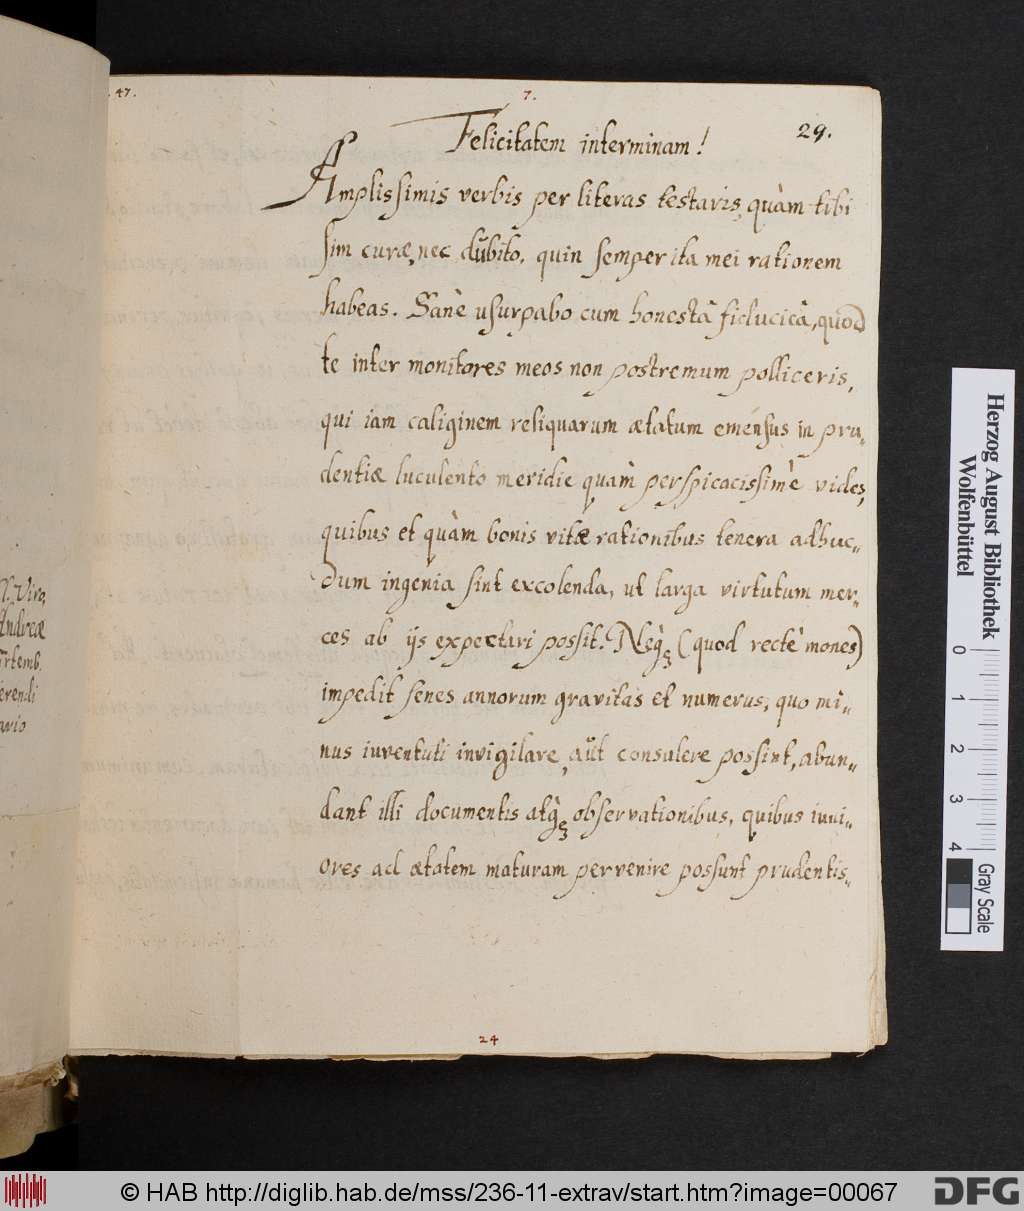 . 47.
7.
29.
Felicitatem interminam!
Amplissimis verbis per literas testaris, quàm tibi
sim curæ, nec dubito, quin semper ita mei rationem
habeas. Sanè usurpabo cum honestâ fiduciâ, quod
te inter monitores meos non postremum polliceris,
qui iam caliginem reliquarum ætatum emensus in pru„
dentiæ luculento meridie quàm perspicacissimè vides,
quibus et quàm bonis vitæ rationibus tenera adhuc„
dum ingenia sint excolenda, ut larga virtutum mer„
ces ab ijs expectari possit. Neq̀ꝫ (quod rectè mones)
impedit senes annorum gravitas et numerus, quo mi„
nus iuventuti invigilare, aŭt consulere possint, abun„
dant illi documentis atq̀ꝫ observationibus, quibus iuni„
ores ad ætatem maturam pervenire possunt prudentis„
24
Viro
Andreæ
erendi
ario
Herzog August Bibliothek
Wolfenbüttel
0 1 2 3 4
Gray Scale
© HAB http://diglib.hab.de/mss/236-11-extrav/start.htm?image=00067
DFG